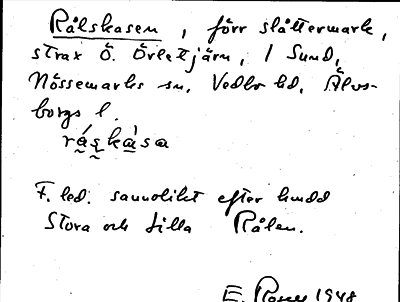 Rålskasen, förr slåttermark,
strax Ö. Örletjärn, i Sund,
Nössemarks sn, Vedbo hd, Älvs-
borgs l.
råskåsa
F. led. sannolikt efter hudd
Stora och Lilla Rålen.
E. 1948